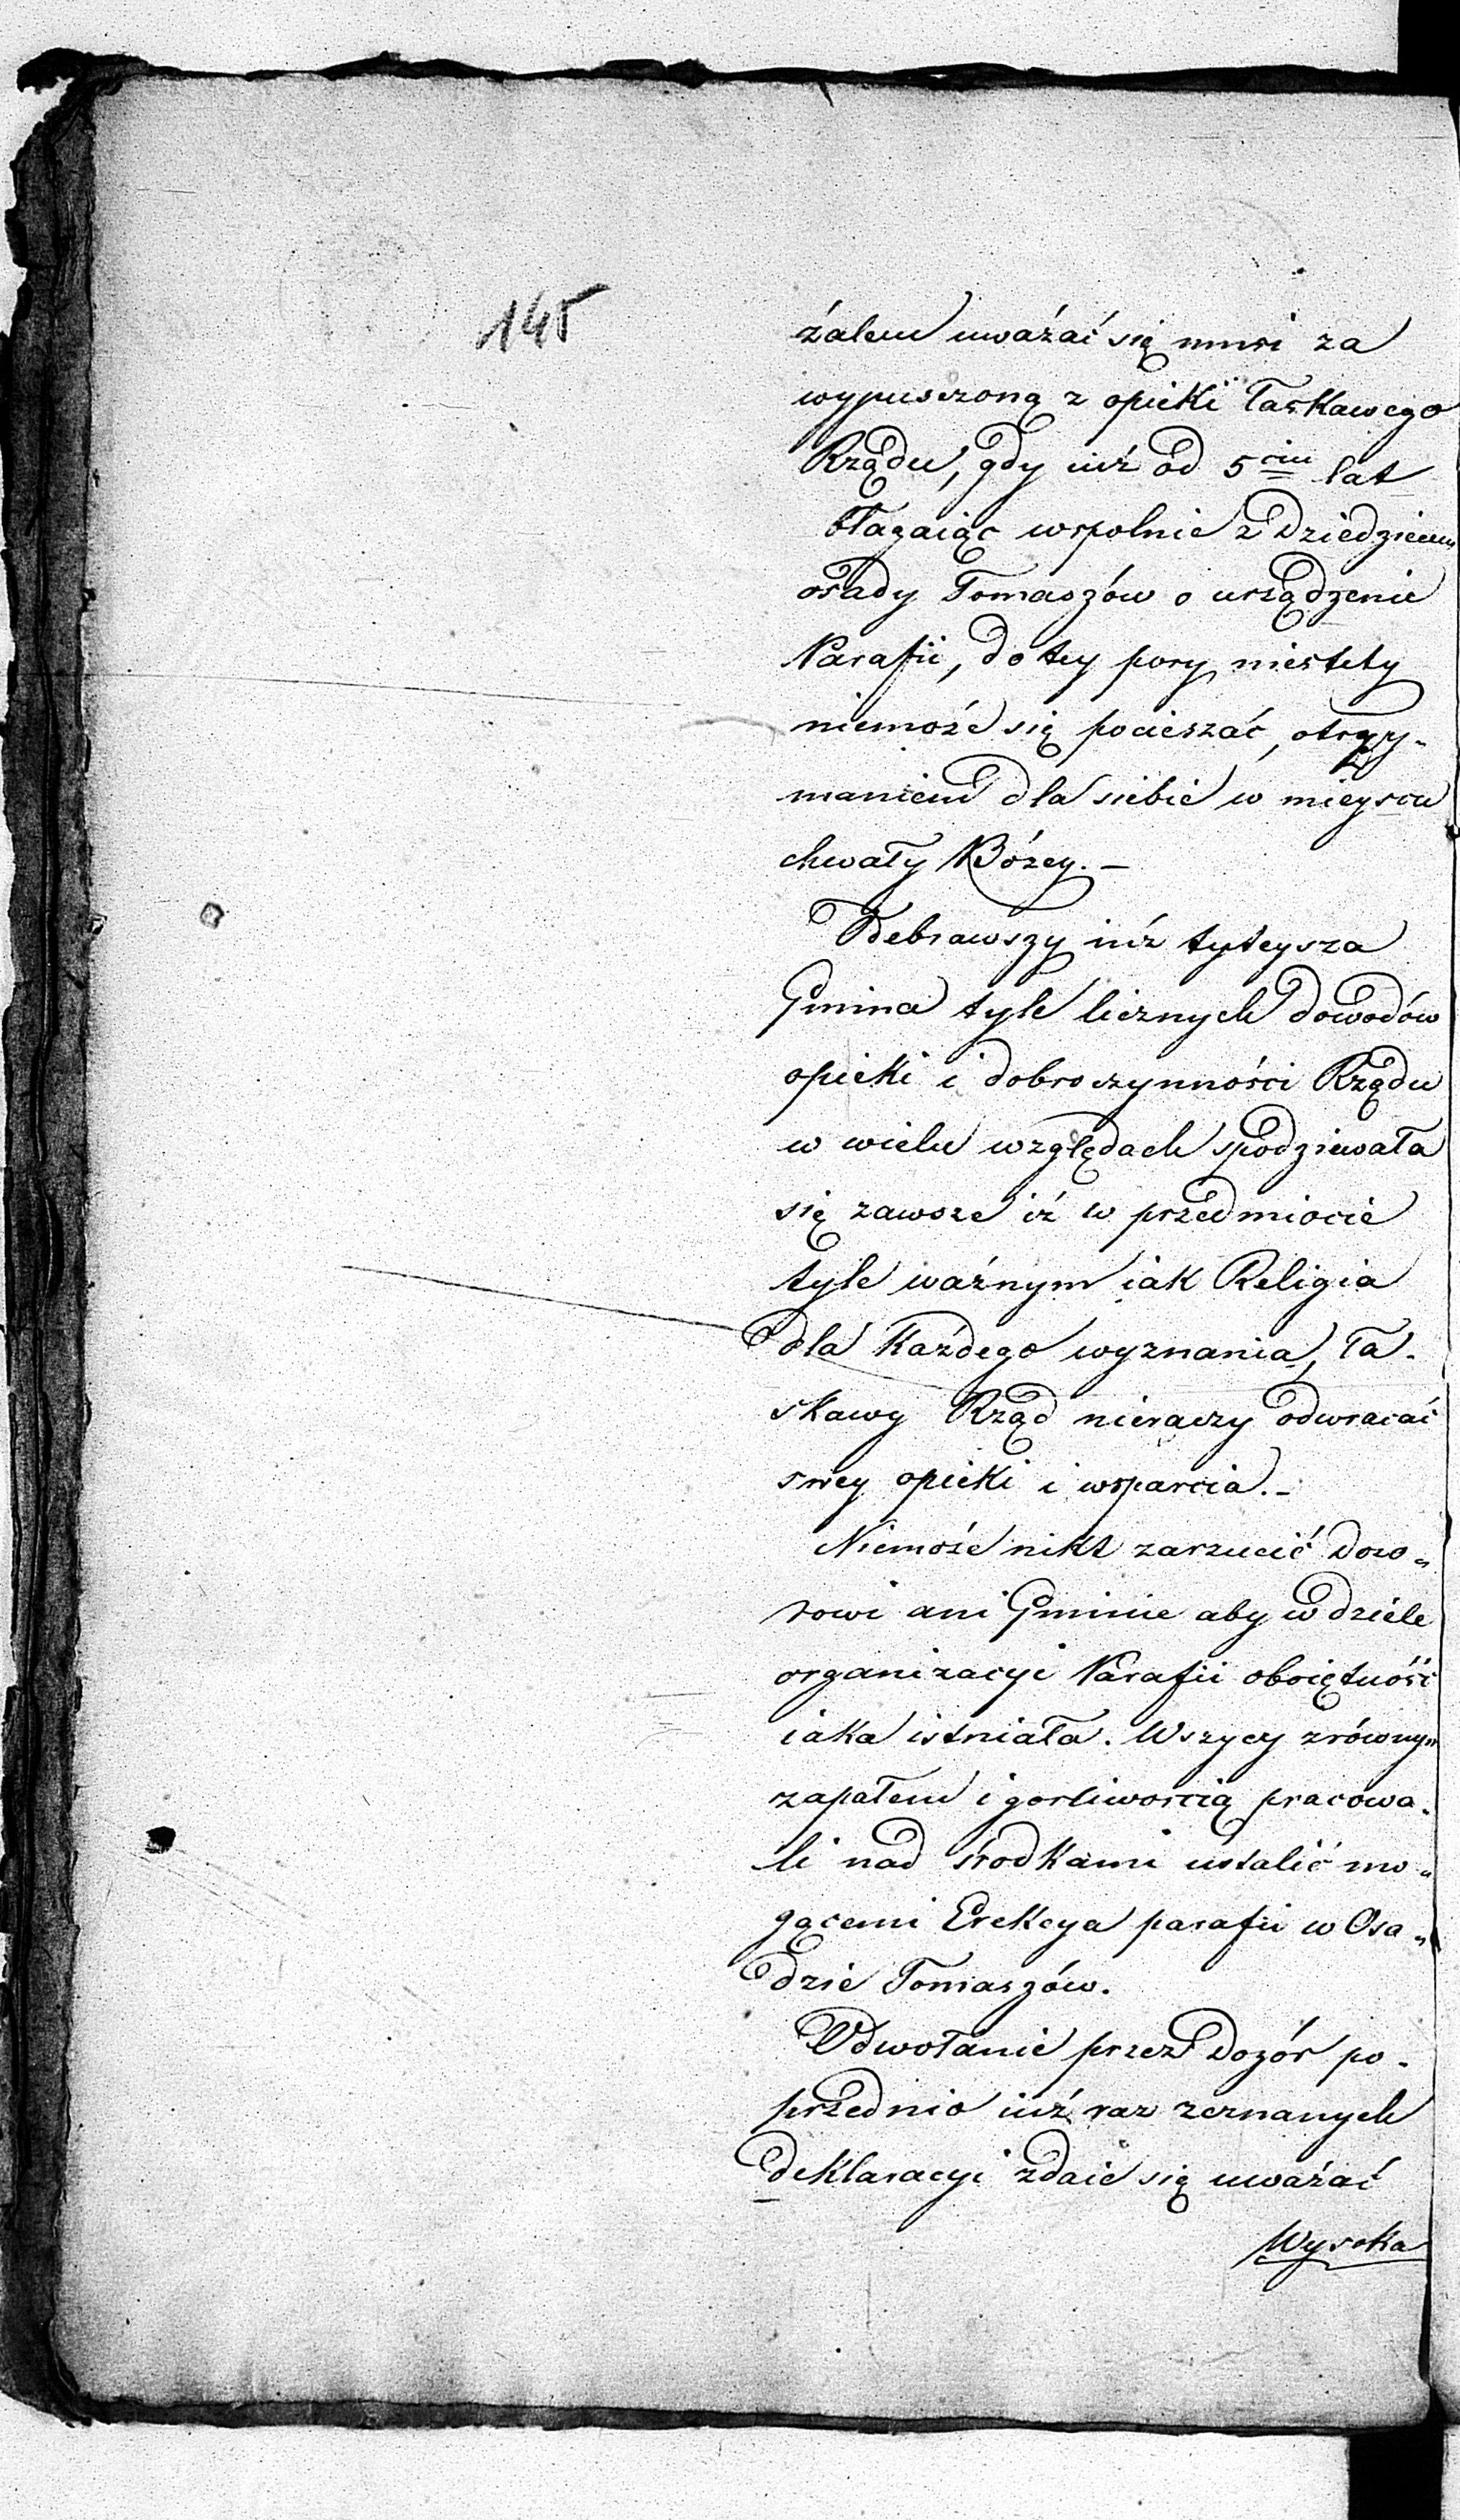 145
żalem uważać się musi za
wypuszczoną z opieki łaskawego
Rządu, gdy iuż od 5ciu lat
błagaiąc wspolnie z Dziedzicem
osady Tomaszów o urządzenie
Parafii, do tey pory niestety
niemoże się pocieszać, otrzy-
maniem dla siebie w mieyscu
chwały Bożey. —
Odebrawszy iuż tuteysza
Gmina tyle licznych dowodów
opieki i dobroczynności Rządu
w wielu względach spodziewała
się zawsze iż w przedmiocie
tyle ważnym iak Religia
dla każdego wyznania, ła-
skawy Rząd nieraczy odwracać
swey opieki i wsparcia. -
Niemoże nikt zarzucić Dozo-
rowi ani Gminie aby w dziele
organizacyi Parafii oboiętność
iaka istniała. Wszycy zrównym
zapałem i gorliwością pracowa-
li nad środkami ustalić mo-
gącemi Erekcya parafii w Osa-
dzie Tomaszów.
Odwołanie przez Dozór po-
przednio iuż raz zeznanych
deklaracyi zdaie się uważać
Wysoka